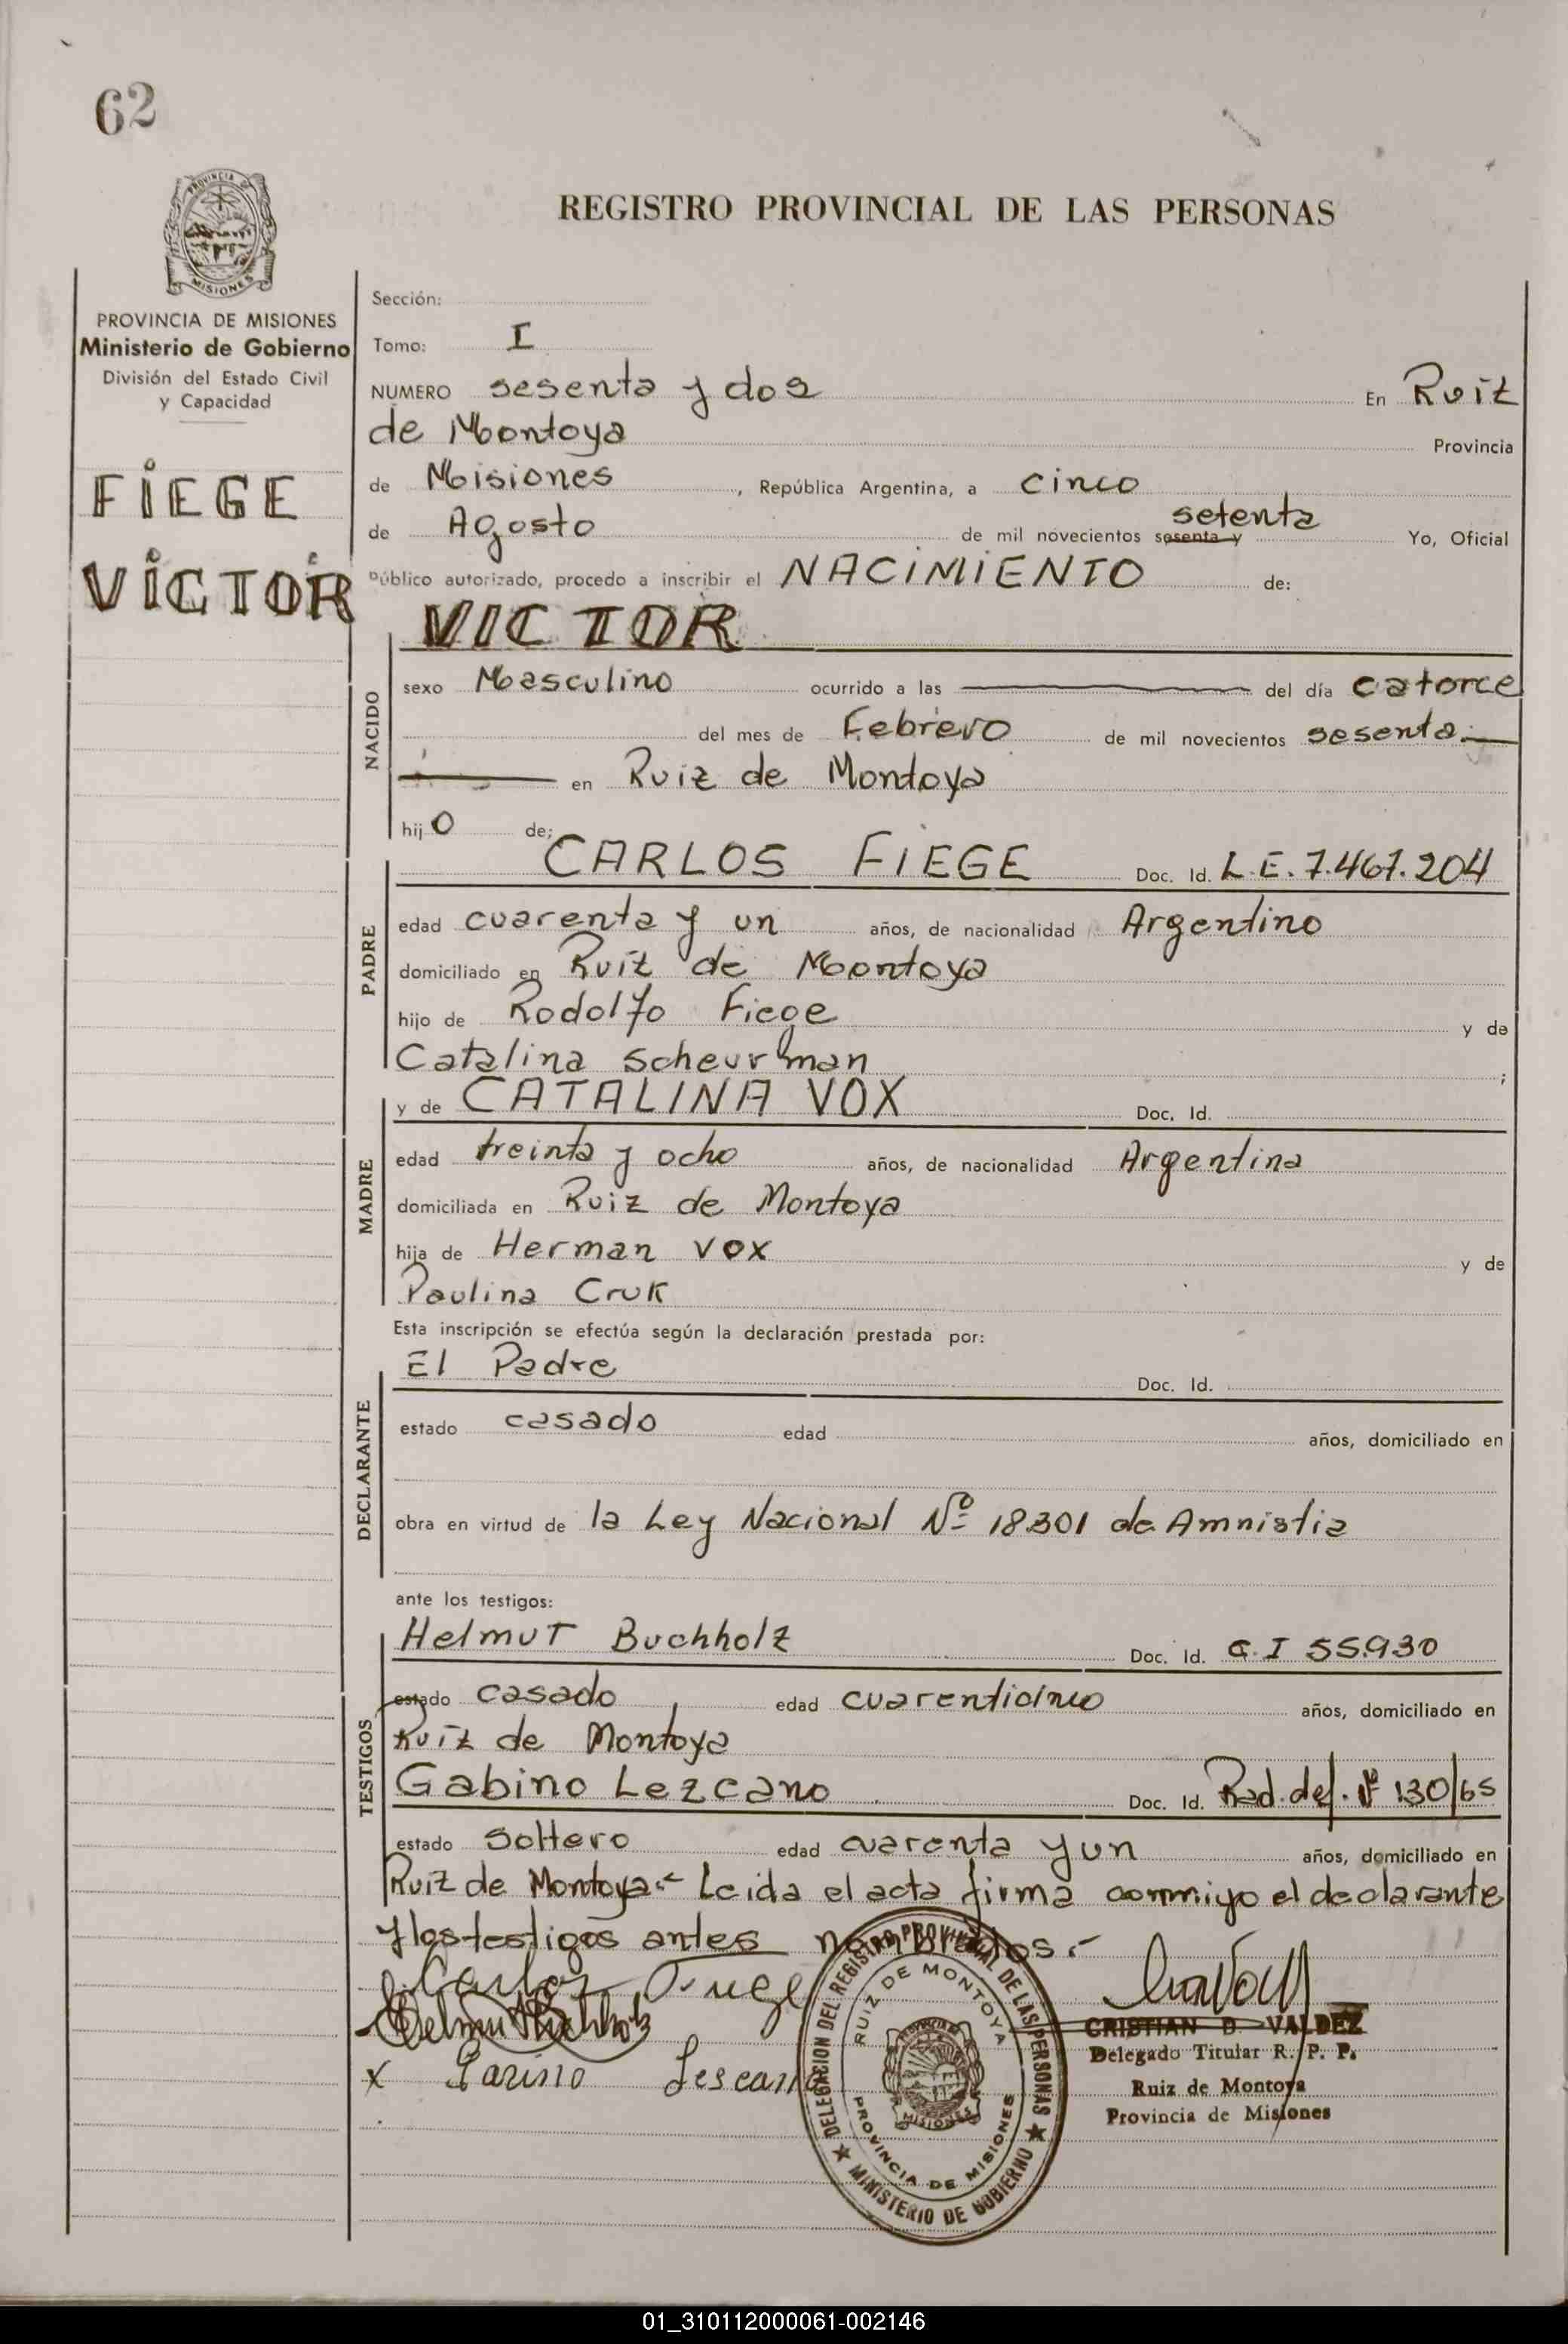 62
PROVINCIA DE
MISIONES
REGISTRO PROVINCIAL DE LAS PERSONAS
PROVINCIA DE MISIONES
Ministerio de Gobierno
División del Estado Civil
y Capacidad
FIEGE
VICTOR
Sección:
Tomo: I
NUMERO sesenta y dos En Ruiz
de Montoya Provincia
de Misiones, República Argentina, a cinco
de Agosto de mil novecientos sesenta y setenta Yo, Oficial
Público autorizado, procedo a inscribir el NACIMIENTO de:
VICTOR
NACIDO
sexo Masculino ocurrido a las del día catorce
del mes de Febrero de mil novecientos sesenta.
en Ruiz de Montoya
hijo de:
CARLOS FIEGE Doc. Id. L.E. 7.467.204
PADRE
edad cuarenta y un años, de nacionalidad Argentino
domiciliado en Ruiz de Montoya
hijo de Rodolfo Fiege y de
Catalina Scheurman ;
y de CATALINA VOX Doc. Id.
MADRE
edad treinta y ocho años, de nacionalidad Argentina
domiciliada en Ruiz de Montoya
hija de Herman Vox y de
Paulina Cruk
Esta inscripción se efectúa según la declaración prestada por:
El Padre Doc. Id.
DECLARANTE
estado casado edad años, domiciliado en
obra en virtud de la Ley Nacional Nº 18.301 de Amnistia
ante los testigos:
Helmut Buchholz Doc. Id. C.I 55.930
TESTIGOS
estado casado edad cuarenticinco años, domiciliado en
Ruiz de Montoya
Gabino Lezcano Doc. Id. Rad. def. Nº 130/65
estado soltero edad cuarenta y un años, domiciliado en
Ruiz de Montoya.- Leida el acta firma conmigo el declarante
y los testigos antes nombrados.-
Carlos Fiege
Helmut Buchholz
x Lescano
DELEGACION DEL REGISTRO PROVINCIAL DE LAS PERSONAS
RUIZ DE MONTOYA
PROVINCIA DE MISIONES
MINISTERIO DE GOBIERNO
CRISTIAN D. VALDEZ
Delegado Titular R. P. P.
Ruiz de Montoya
Provincia de Misiones
01_310112000061-002146